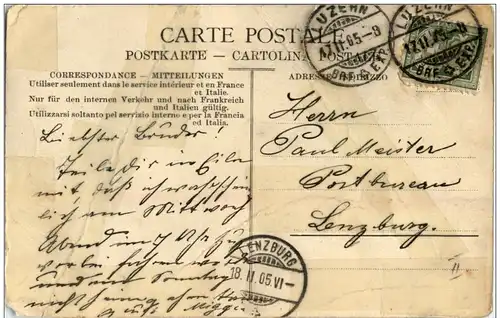 CARTE POSTALE
POSTKARTE - CARTOLINA POSTALE
CORRESPONDANCE - MITTEILUNGEN
Utiliser seulement dans le service intérieur et en France
et Italie.
Nur für den internen Verkehr und nach Frankreich
und Italien gültig.
Utilizzarsi soltanto pel servizio interno e per la Francia
ed Italia.
Liebster Bruder!
Teile dir in Eile
mit, daß ich wahrschein
lich am Mittwoch
Abend im 7 Uhr
vorbei fahren
und am Sonntag
nicht
LUZERN
17.II.05.-9
BRF. EXP.
LUZERN
17.II.05.-9
BRF. EXP.
Herrn
Paul Meister
Postbureau
Lenzburg.
LENZBURG
18.II.05.VI-
II